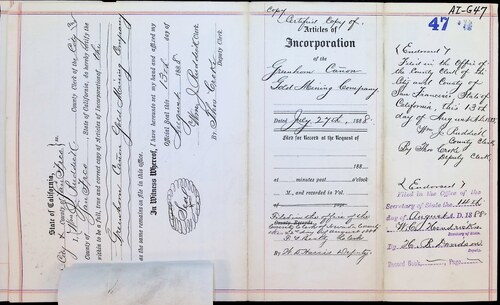 State of California,
City & County of San Fr
I, Wm J Ruddick County Clerk of the City &
County of San Fr State of California, do hereby certify the
within to be a full, true and correct copy of Articles of Incorporation of the
Greenhorn Cañon Gold Mining Company
as the same remains on file in this office.
In Witness Whereof, I have hereunto set my hand and affixed my
Official Seal this 13th day of
August 1888
Wm J Ruddick Clerk
By Thos Crook Deputy Clerk.
Seal
Copy
Certified Copy of
Articles of
Incorporation
of the
Greenhorn Cañon
Gold Mining Company
Dated July 27th, 1888
Filed for Record at the Request of
188
at minutes past o'clock
M., and recorded in Vol.
of
Filed in the office of the
County Records
County Clerk of County
day of August 1888
Clerk
By Deputy
AI-647
47
{Endorsed}
Filed in the Office of
the County Clerk of the
City and County of
San Francisco State of
California, this 13th
day of August 1888
Wm J Ruddick
County Clerk
By Thos Crook
Deputy Clerk
{Endorsed}
Filed in the Office of the
Secretary of State the 14th
day of August A.D. 1888
W.C. Hendricks
Secretary of State
By
Deputy
Record Book Page